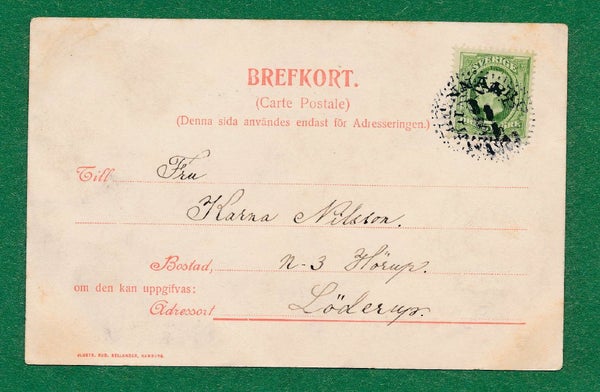 SVERIGE
BREFKORT.
(Carte Postale)
(Denna sida användes endast för Adresseringen.)
Till Fru
Karna Nilsson.
Bostad, N-3 Hörup.
om den kan uppgifvas:
Adressort Löderup.